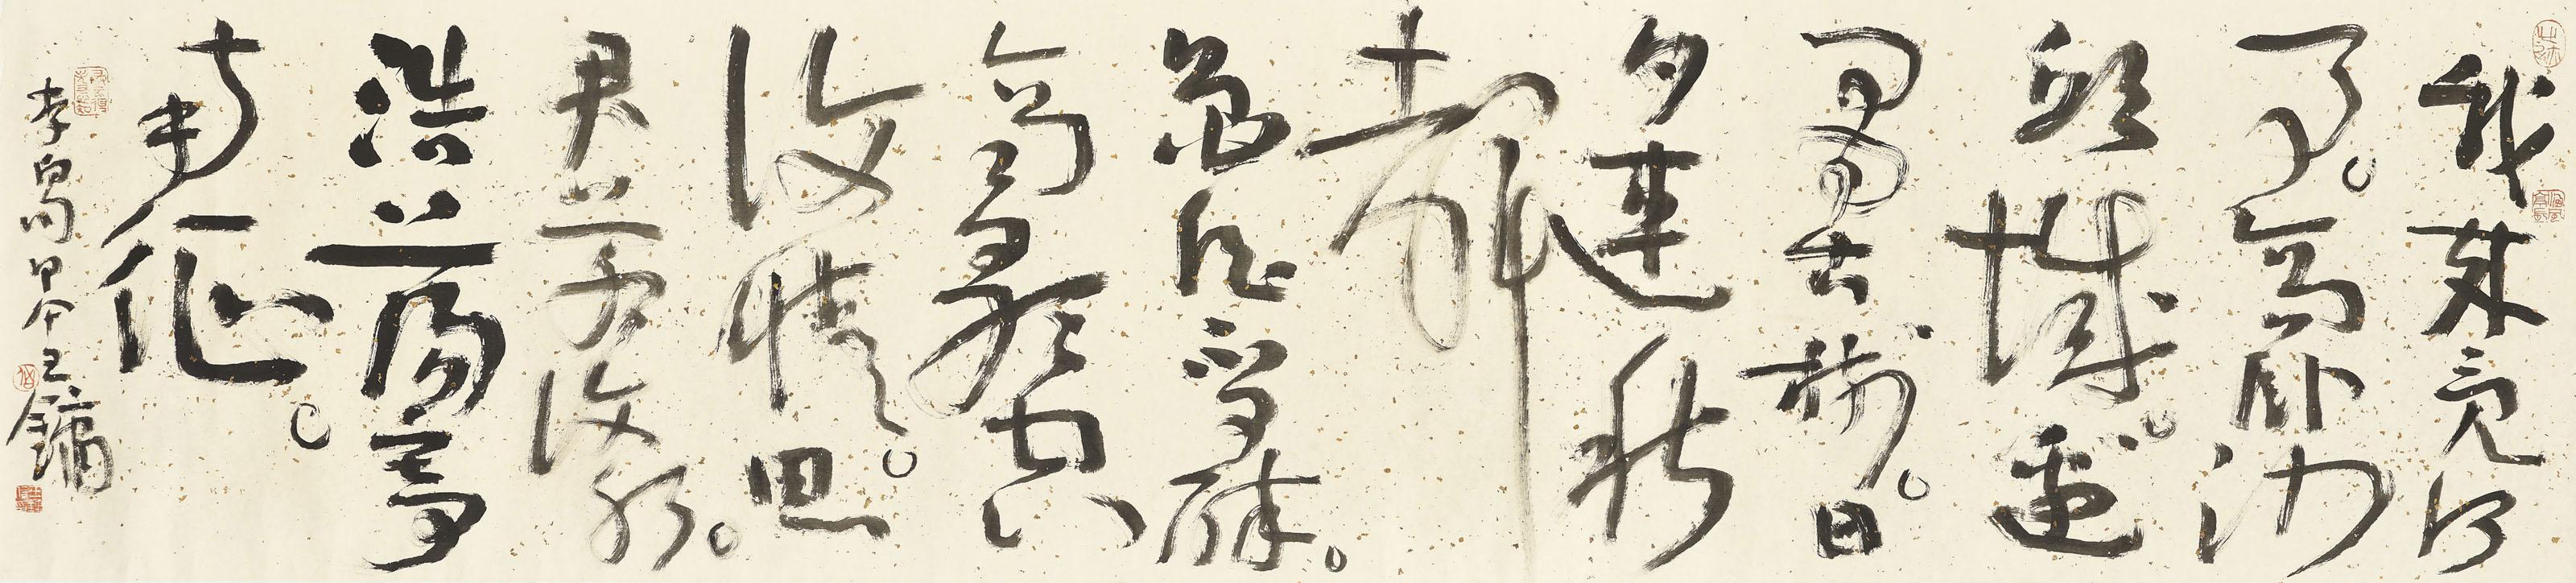 我來竟何
事。高卧沙
邱城。邊
有古樹。日
夕連秋
聲
魯酒不可醉。
齊歌空
復情。思
君若汶水。
浩蕩寄
南征。
李白句甲午王鏞